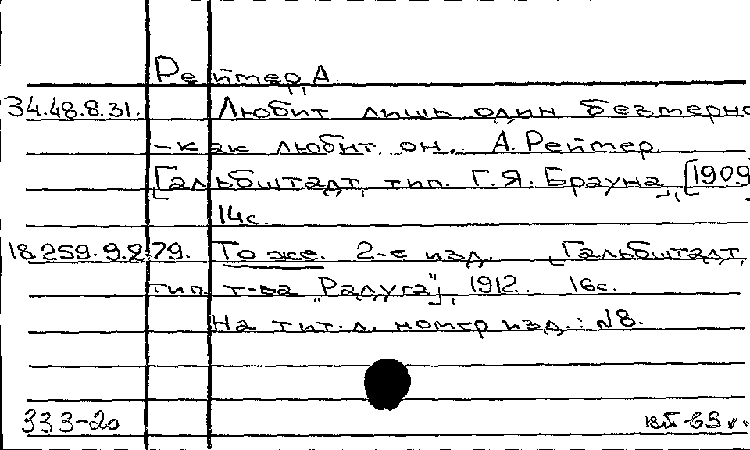 Рейтер, А.
34.48.8.31. Любит лишь один безмерно
- как любит он. А. Рейтер
[Гальбштадт, тип. Г.Я. Брауна], [1909
14с.
18.259.9.279. То же. 2-е изд. [Гальбштадт,
тип. т-ва "Радуга"], 1912. 16с.
На тит. л. номер изд.: N8.
333-20